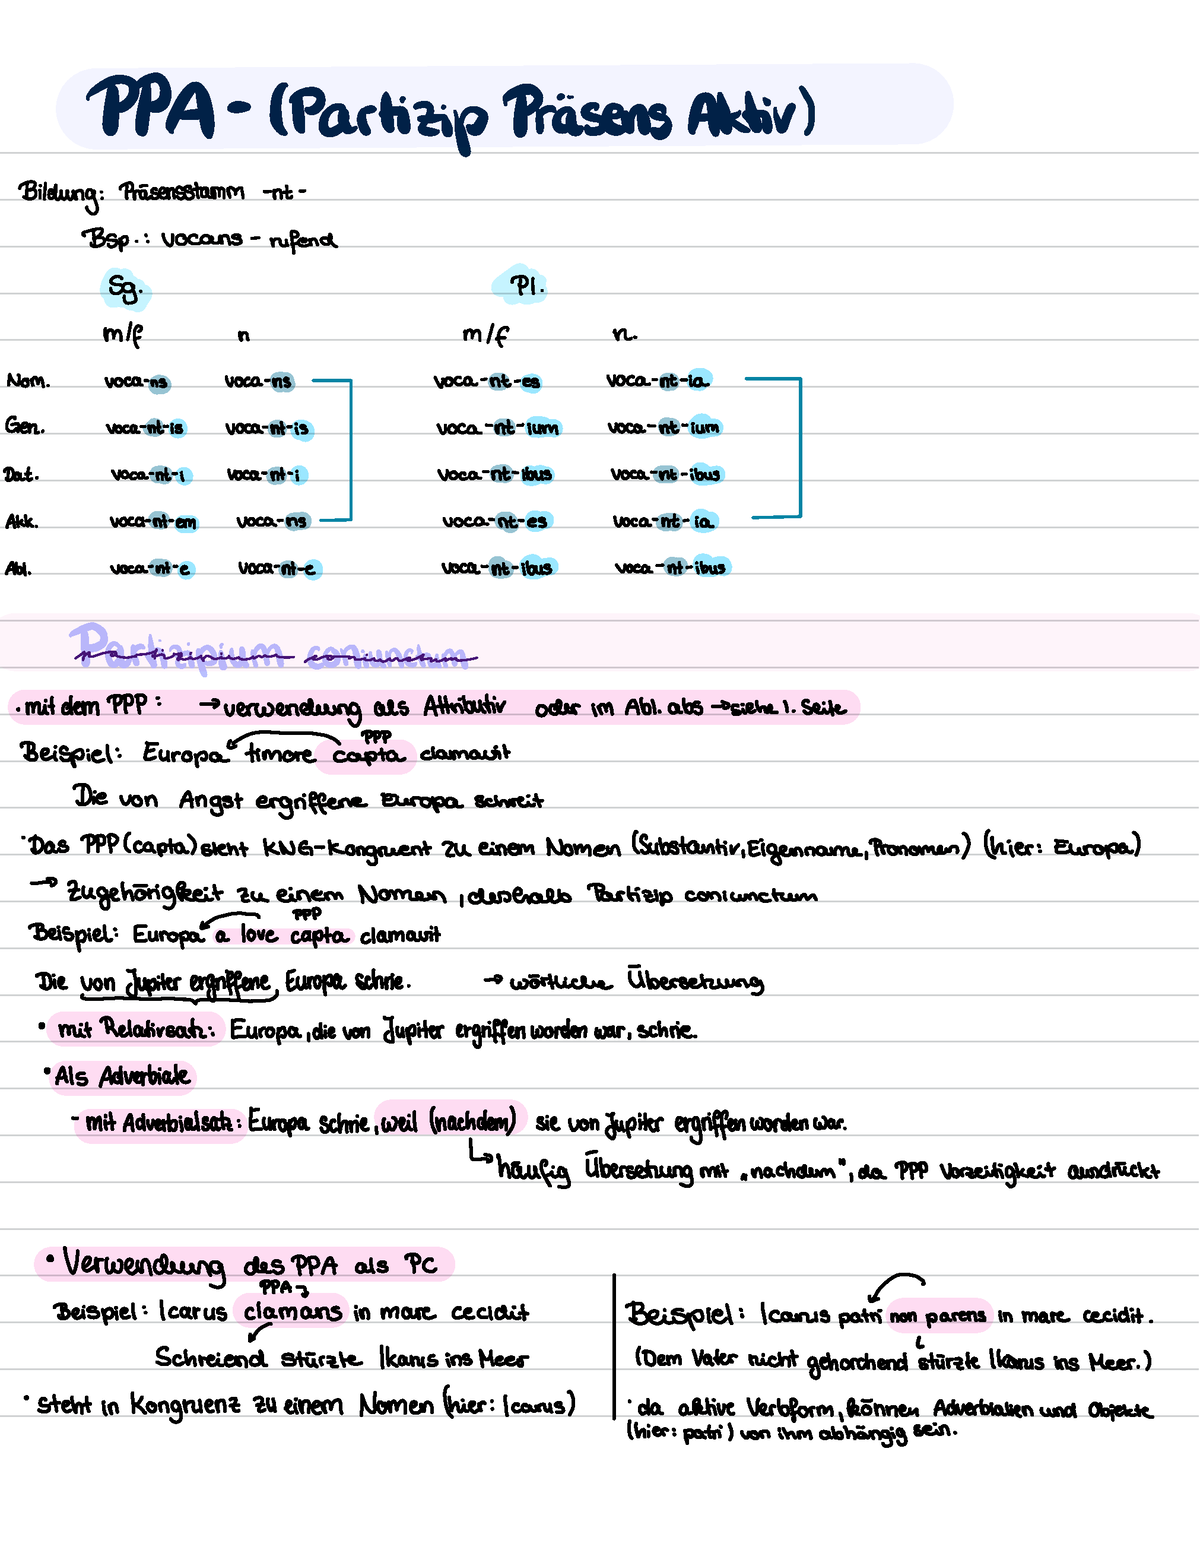 PPA - (Partizip Präsens Aktiv)
Bildung: Präsensstamm -nt-
Bsp.: vocans - rufend
Sg. Pl.
m/f n m/f n.
Nom. voca-ns voca-ns voca-nt-es voca-nt-ia
Gen. voca-nt-is voca-nt-is voca-nt-ium voca-nt-ium
Dat. voca-nt-i voca-nt-i voca-nt-ibus voca-nt-ibus
Akk. voca-nt-em voca-ns voca-nt-es voca-nt-ia
Abl. voca-nt-e voca-nt-e voca-nt-ibus voca-nt-ibus
Partizipium coniunctum
· mit dem PPP: → verwendung als Attributiv oder im Abl. abs → siehe 1. Seite
PPP
Beispiel: Europa timore capta clamavit
Die von Angst ergriffene Europa schreit
· Das PPP (capta) steht KNG-Kongruent zu einem Nomen (Substantiv, Eigenname, Pronomen) (hier: Europa)
→ Zugehörigkeit zu einem Nomen, deshalb Partizip coniunctum
PPP
Beispiel: Europa a Iove capta clamavit
Die von Jupiter ergriffene Europa schrie. → wörtliche Übersetzung
· mit Relativsatz: Europa, die von Jupiter ergriffen worden war, schrie.
· Als Adverbiale
- mit Adverbialsatz: Europa schrie, weil (nachdem) sie von Jupiter ergriffen worden war.
↳ häufig Übersetzung mit „nachdem", da PPP Vorzeitigkeit ausdrückt
· Verwendung des PPA als PC
PPA
Beispiel: Icarus clamans in mare cecidit
Schreiend stürzte Ikarus ins Meer
· steht in Kongruenz zu einem Nomen (hier: Icarus)
Beispiel: Icarus patri non parens in mare cecidit.
(Dem Vater nicht gehorchend stürzte Ikarus ins Meer.)
· da aktive Verbform, können Adverbialien und Objekte
(hier: patri) von ihm abhängig sein.